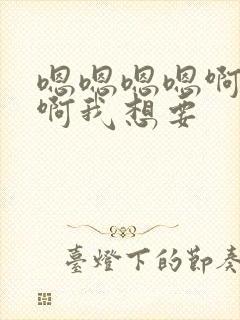 嗯嗯嗯嗯啊
啊我想要
臺燈下的節奏